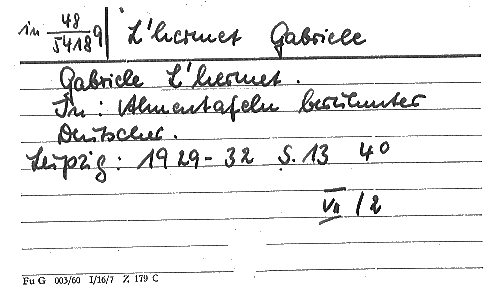 in 48/5418q L'hermet Gabriele
Gabriele L'hermet.
In: Ahnentafeln berühmter
Deutscher.
Leipzig: 1929-32 S. 13 40
VII /2
Fu G 003/60 I/16/7 Z 179 C